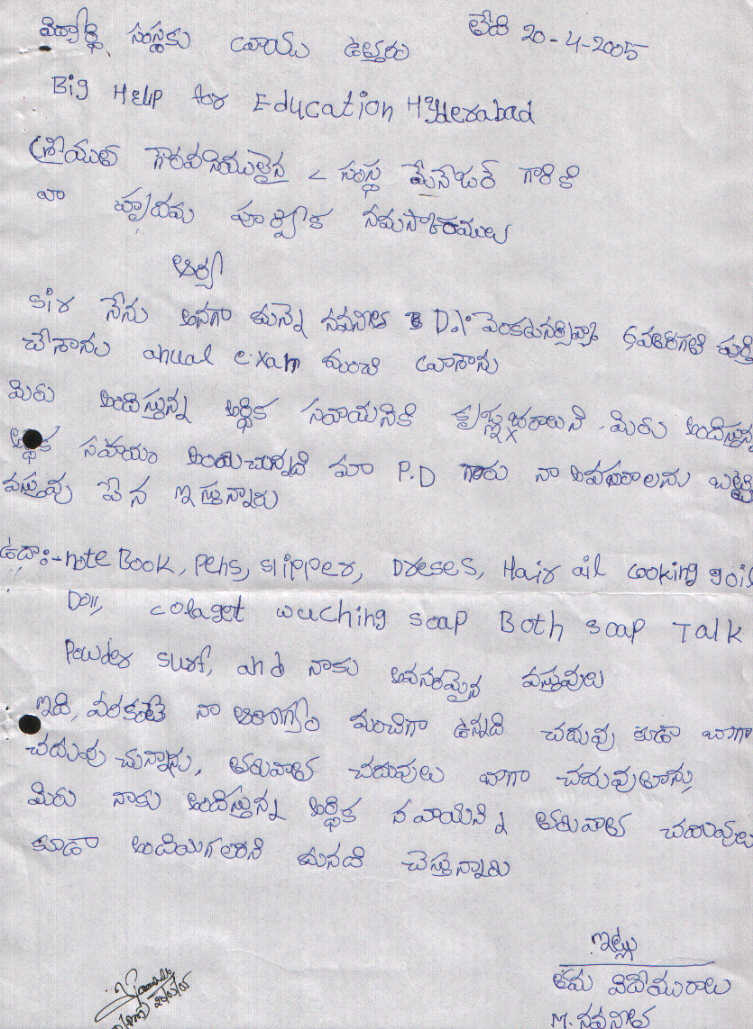 విద్యార్థి సంస్థకు వ్రాయు ఉత్తరం తేది 20-4-2005
Big Help for Education Hyderabad
శ్రీయుత గౌరవనియులైన సంస్థ మేనేజర్ గారికి
నా హృదయ పూర్వక నమస్కారములు
ఆర్య
sir నేను అనగా యన్నె నవనీత D/o వెంకటనర్సయ్య
చేశాను anual exam మంచి వ్రాశాను
మిరు అందిస్తున్న ఆర్థిక సహయనికి కృతజ్ఞతలు మిరు అందిస్తున్న
ఆర్థిక సహాయం అందుచున్నది మా P.D గారు నా అవసరాలను బట్టి
వస్తువు పైన ఇస్తున్నారు
ఉదా:- note Book, Pens, slipper, Dreses, Hair oil cooking goil
Doll, colaget wuching soap Both soap Talk
Powder surf, and నాకు అవసరమైన వస్తువులు
ఇది, వరకంటే నా ఆరోగ్యం మంచిగా ఉన్నది చదువు కుడా బాగా
చదువు చున్నాను, తరువాత చదువులు బాగా చదువుతాను,
మిరు నాకు అందిస్తున్న ఆర్థిక సహాయన్ని తరువాత చదువులు
కుడా అందియగలరని మనవి చెస్తున్నాను
ఇట్లు
తమ విదేయురాలు
M. నవనీత